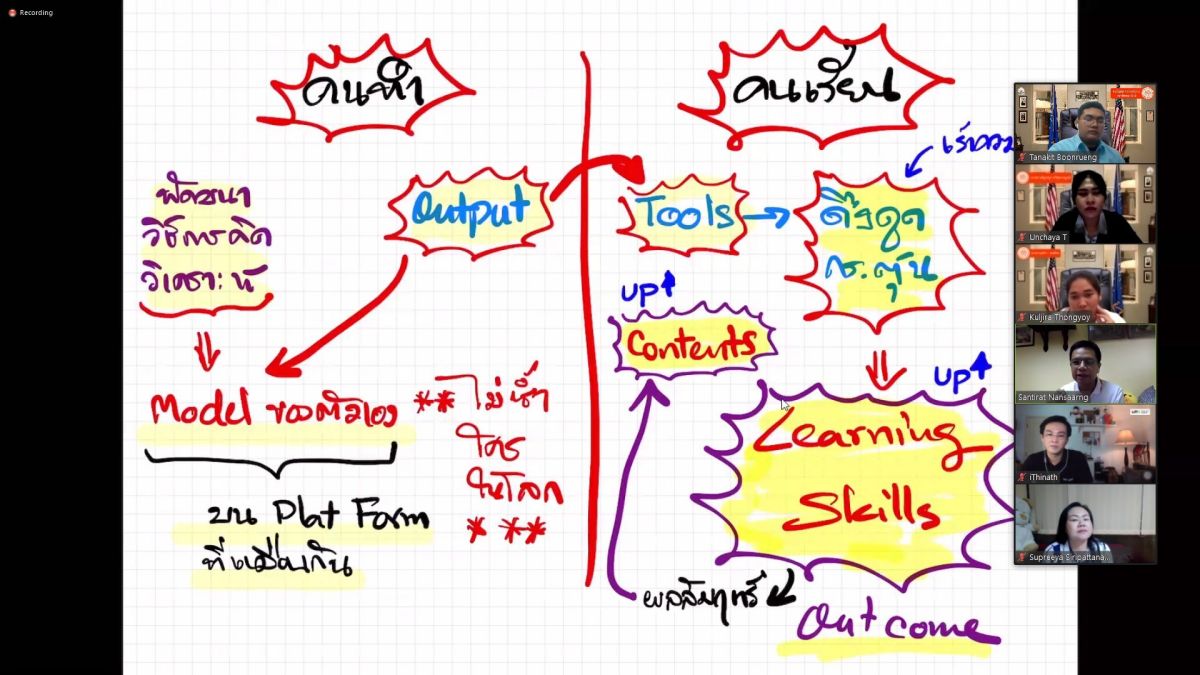 Recording
คนทำ
พัฒนา
วิธีการคิด
วิเคราะห์
Output
Model ของตัวเอง
บน Plat Form
ที่เหมือนกัน
** ไม่ซ้ำ
ใคร
ในโลก
* **
คนเรียน
เร้าความ
Tools
ดึงดูด
กระตุ้น
up
Contents
up
Learning
Skills
ผลสัมฤทธิ์
Outcome
Tanakit Boonrueng
Unchaya T
Kuljira Thongyoy
Santirat Nansaarng
iThinath
Supreeya Siripattana...